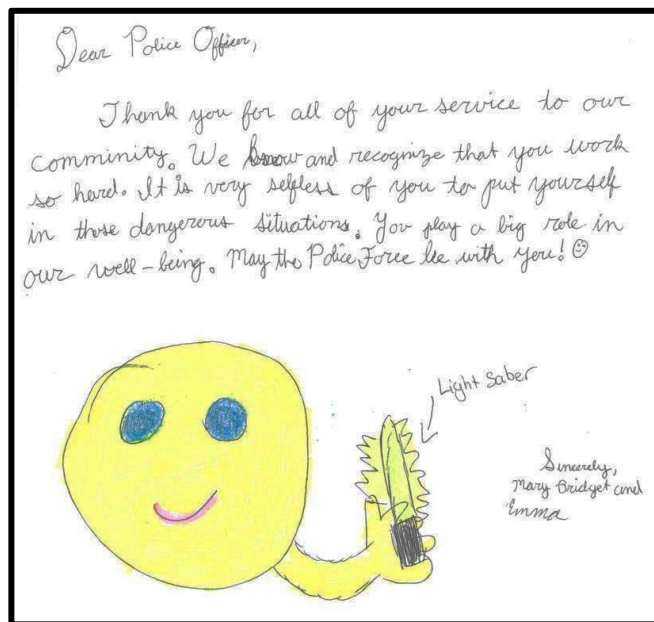 Dear Police Officer,
Thank you for all of your service to our
comminity. We know and recognize that you work
so hard. It is very selfless of you to put yourself
in those dangerous situations. You play a big role in
our well-being. May the Police Force be with you! ☺
Light Saber
Sincerely,
Mary Bridget and
Emma